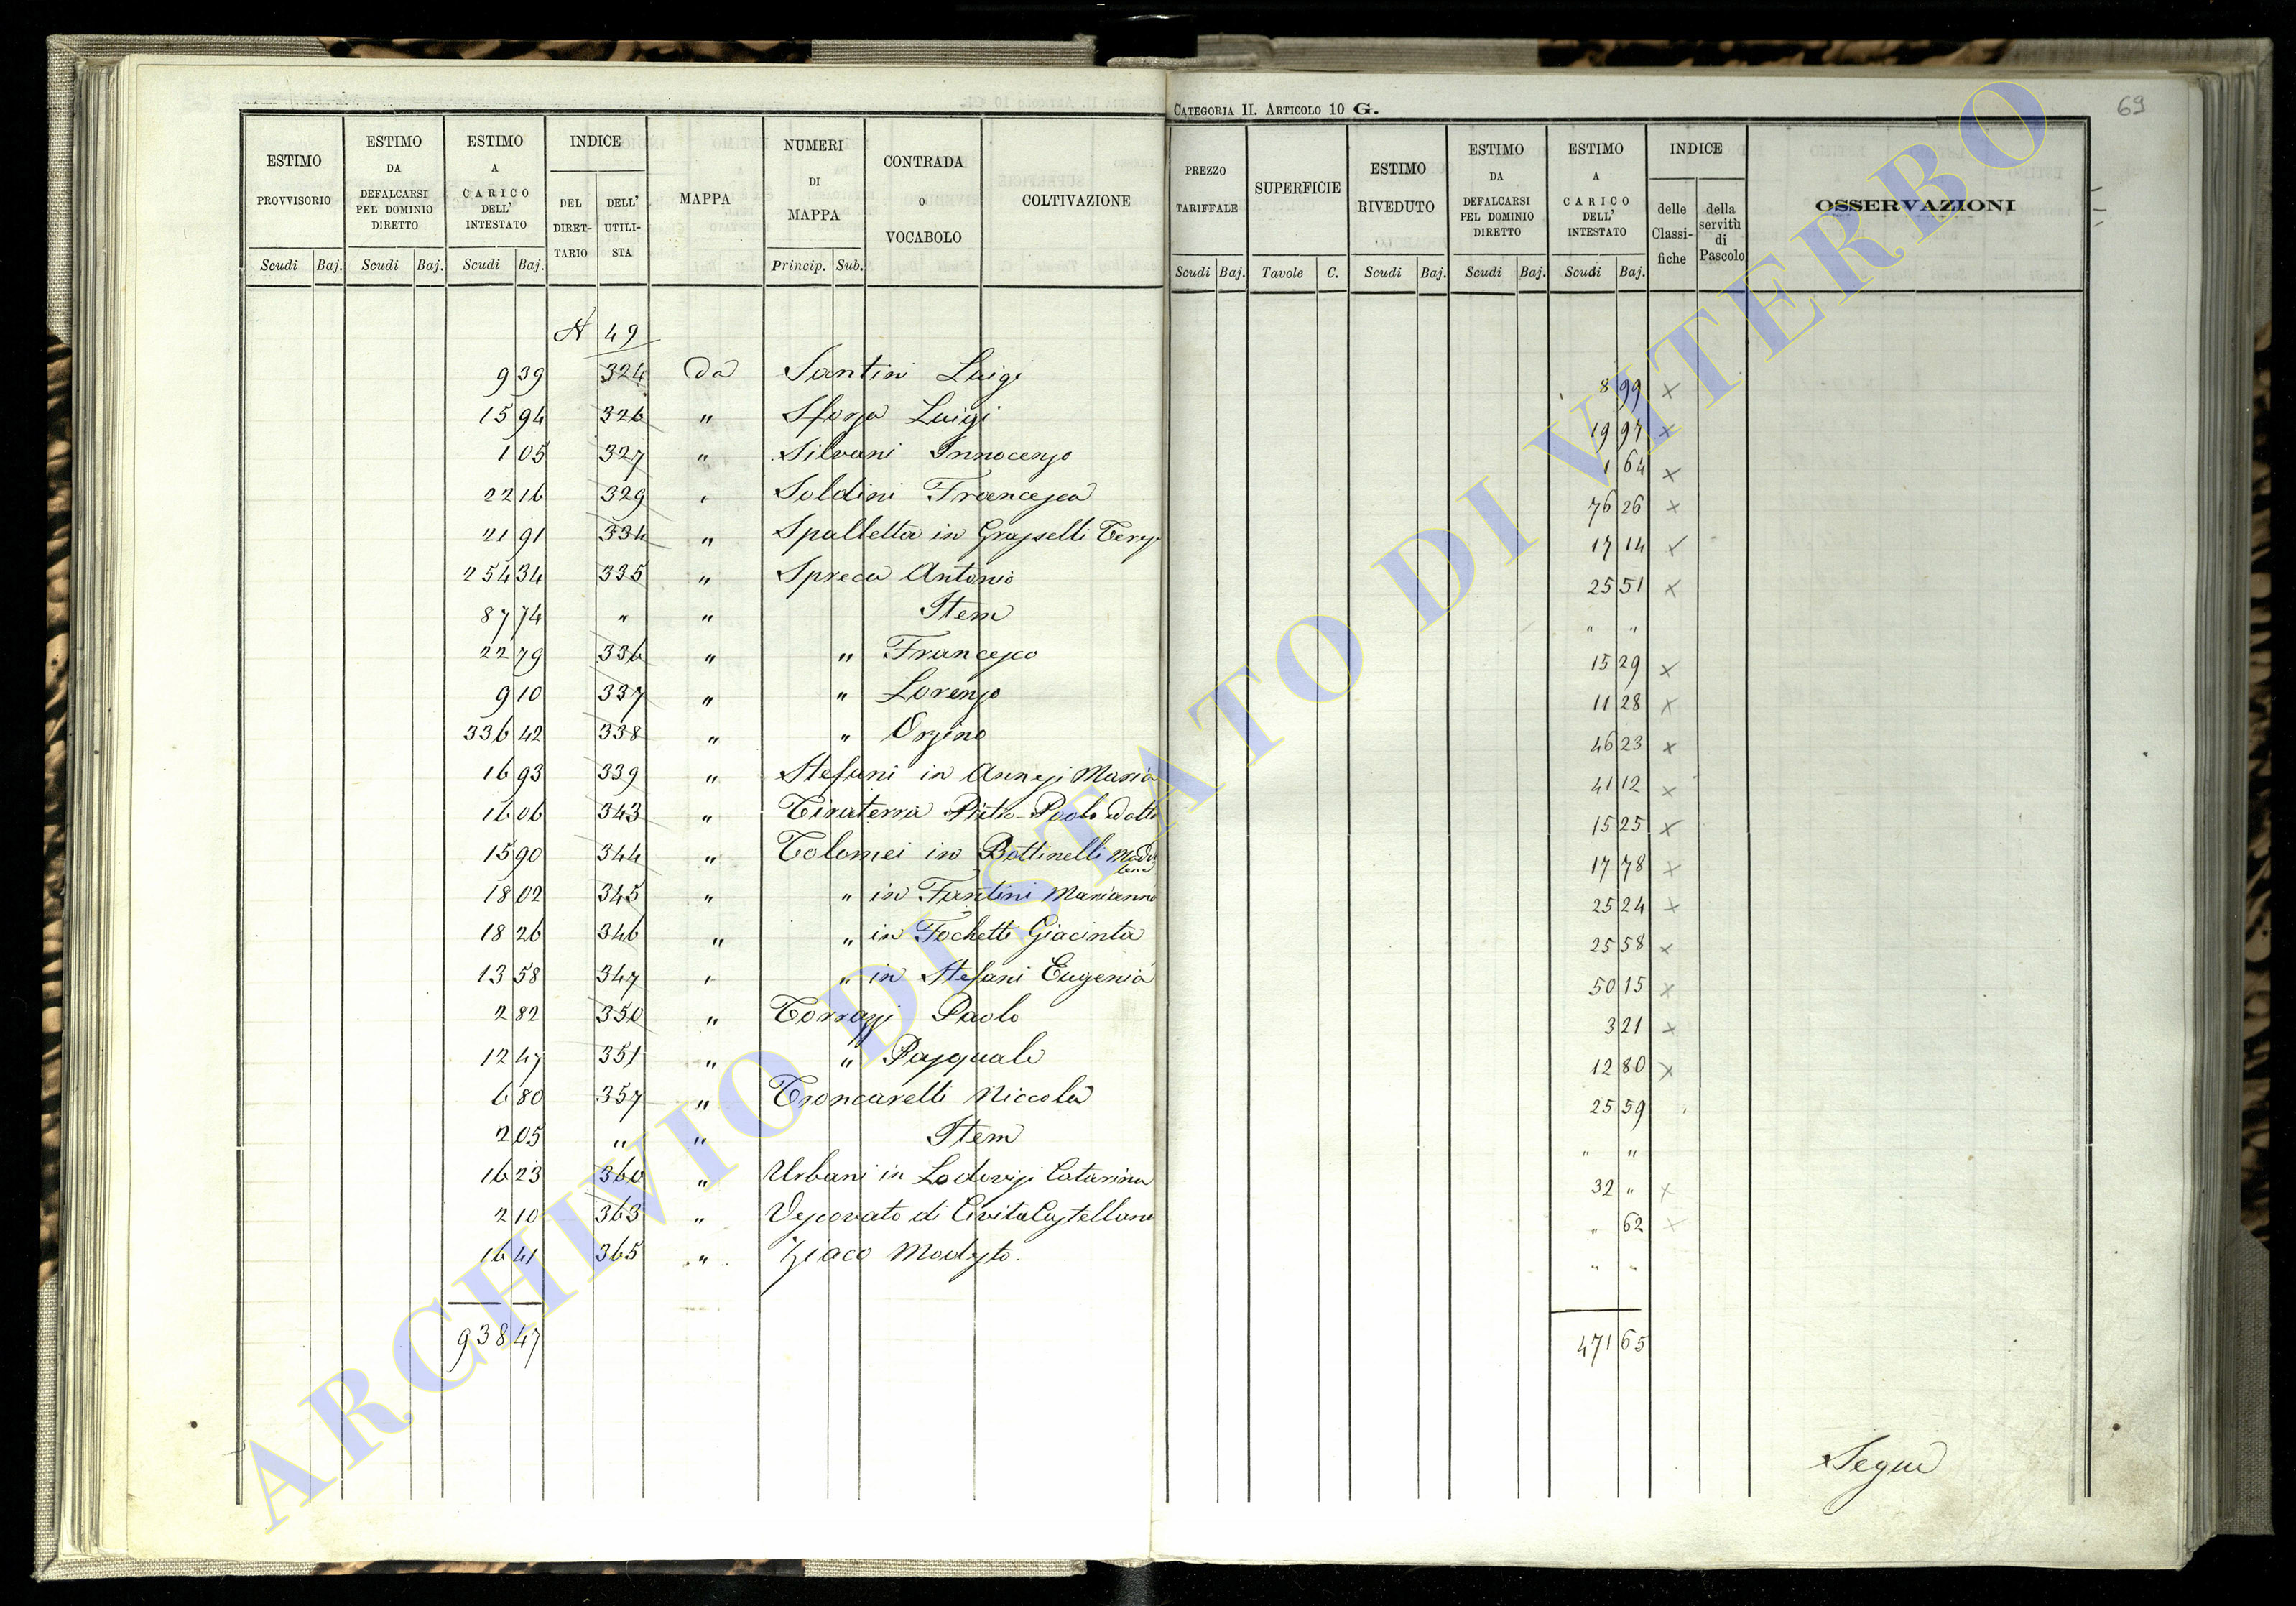 CATEGORIA II. ARTICOLO 10 G.
69
ESTIMO PROVVISORIO
ESTIMO DA DEFALCARSI PEL DOMINIO DIRETTO
ESTIMO A CARICO DELL' INTESTATO
INDICE
DEL DIRET-TARIO
DELL' UTILI-STA
MAPPA
NUMERI DI MAPPA
CONTRADA O VOCABOLO
COLTIVAZIONE
PREZZO TARIFFALE
SUPERFICIE
ESTIMO RIVEDUTO
ESTIMO DA DEFALCARSI PEL DOMINIO DIRETTO
ESTIMO A CARICO DELL' INTESTATO
INDICE
delle Classi-fiche
della servitù di Pascolo
OSSERVAZIONI
Scudi Baj. Scudi Baj. Scudi Baj. Princip. Sub. Scudi Baj. Tavole C. Scudi Baj. Scudi Baj. Scudi Baj.
N 49
9 39 324 Da Santini Luigi 8 99 ×
15 94 326 " Sforza Luigi 19 97 ×
1 05 327 " Silvani Innocenzo 1 64 ×
22 16 329 " Soldini Francesca 76 26 ×
21 91 334 " Spalletta in Grasselli 17 14 ×
254 34 335 " Spreca Antonio 25 51 ×
87 74 " " Item " "
22 79 336 " " Francesco 15 29 ×
9 10 337 " " Lorenzo 11 28 ×
336 42 338 " " Orzino 46 23 ×
16 93 339 " Stefani in Annesi Maria 41 12 ×
16 06 343 " Tiraterra Pietro-Paolo 15 25 ×
15 90 344 " Tolomei in Bottinelli Madalena 17 78 ×
18 02 345 " " in Fantini Marianna 25 24 ×
18 26 346 " " in Fochetti Giacinta 25 58 ×
13 58 347 " " in Stefani Eugenia 50 15 ×
2 82 350 " Torrazzi Paolo 3 21 ×
12 47 351 " " Pasquale 12 80 ×
6 80 357 " Troncarelli Niccola 25 59
2 05 " " Item " "
16 23 360 " Urbani in Lodovisi Catarina 32 " ×
2 10 363 " Vescovato di Civita Castellana " 62 ×
16 41 365 " Ziaco Modesto. " "
938 47 471 65
Segue
ARCHIVIO DI STATO DI VITERBO